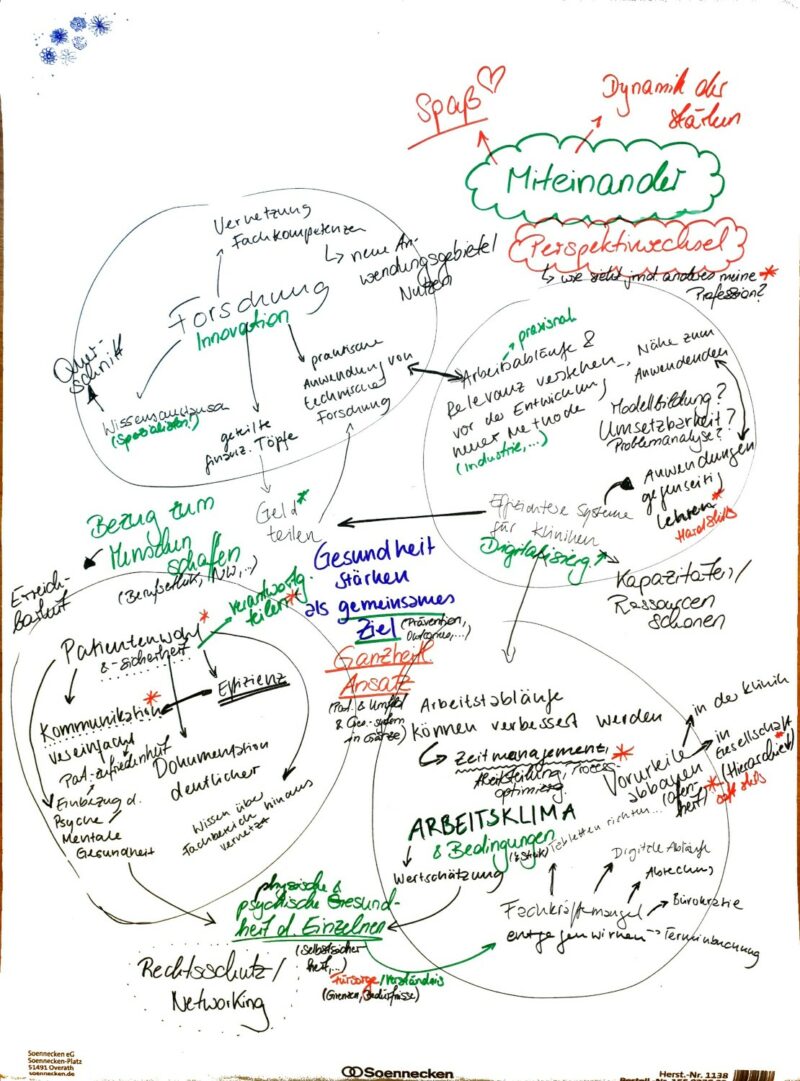 Spaß
Dynamik der
stärken
Miteinander
Perspektivwechsel
↳ wie sieht jmd anderes meine *
Profession?
Vernetzung
Fachkompetenzen
↳ neue An-
wendungsgebiete/
Nutzen
Forschung
Innovation
Quer-
schnitt
Wissensaustausch
(Spezialisten!)
geteilte
finanz. Töpfe
praktische
Anwendung von
technischer
Forschung
Geld *
teilen
praxisnah
Arbeitsabläufe &
Relevanz verstehen
vor der Entwicklung
neuer Methode
(Industrie,...)
Nähe zum
Anwendenden
Modellbildung?
Umsetzbarkeit?
Problemanalyse?
Anwendungen
gegenseitig
Lehren *
Hardskills
Effizientere Systeme
für Kliniken
Digitalisierg↑
Kapazitäten/
Ressourcen
schonen
Bezug zum
Menschen
schaffen
(Berufsethik, NW,...)
Erreich-
barkeit
Verantwortg.
teilen *
Gesundheit
stärken
als gemeinsames
Ziel (Prävention,
Outcome,...)
Ganzheitl.
Ansatz
(Pat. & Umfeld
& Ges.-system
Patientenwohl *
& -sicherheit
Effizienz
Kommunikation *
vereinfacht
Pat.-zufriedenheit
Einbezug d.
Psyche /
Mentale
Gesundheit
Dokumentation
deutlicher
Wissen über
Fachbereich hinaus
vernetzt
Arbeitsabläufe
können verbessert werden
↳ Zeitmanagement, *
Arbeitsteilung, Prozess-
optimierg.
Vorurteile
abbauen
(Offen-
heit) *
soft skills
in der Klinik
in
Gesellschaft
(Hierarchien) *
ARBEITSKLIMA
& Bedingungen
Tabletten richten...
Wertschätzung
Fachkräftemangel
entgegenwirken
Digitale Abläufe
Abrechng
Bürokratie
Terminbuchung
physische &
psychische Gesund-
heit d. Einzelnen
(Selbstsicher-
heit,...)
Fürsorge/Verständnis
(Grenzen, Bedürfnisse)
Rechtsschutz/
Networking
Soennecken eG
Soennecken-Platz
51491 Overath
soennecken.de
Soennecken
Herst.-Nr. 1138